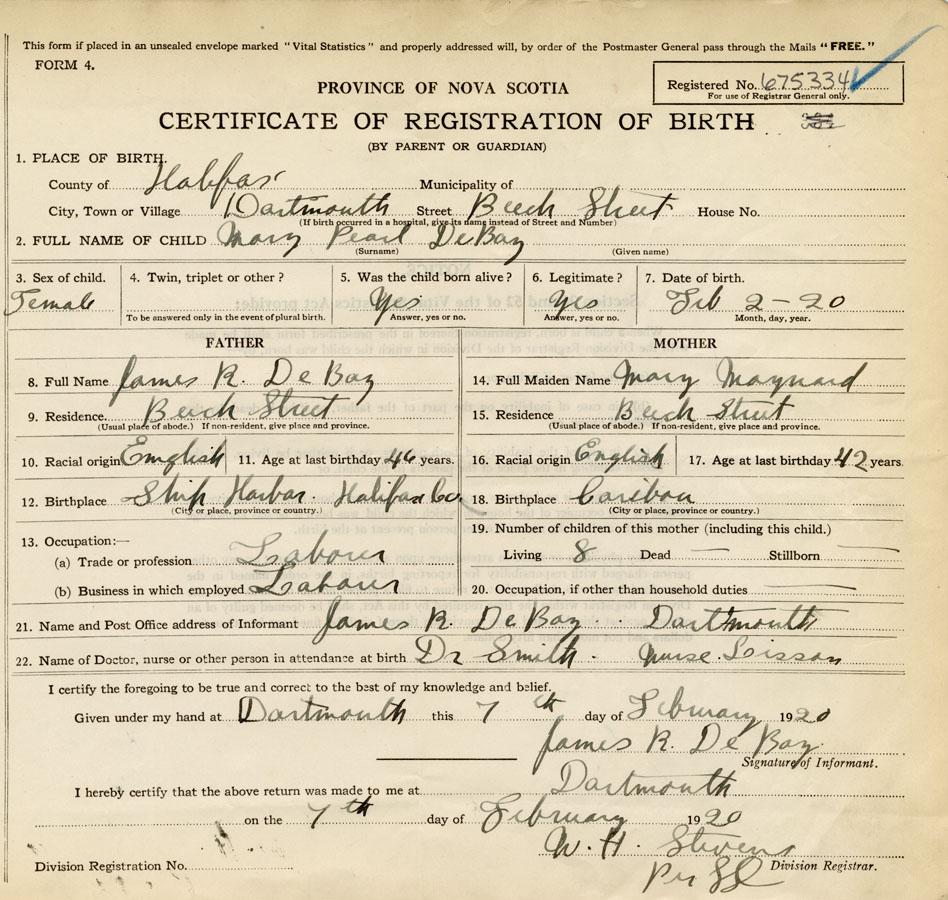 This form if placed in an unsealed envelope marked "Vital Statistics" and properly addressed will, by order of the Postmaster General pass through the Mails "FREE."
FORM 4.
Registered No. 675334
For use of Registrar General only.
PROVINCE OF NOVA SCOTIA
CERTIFICATE OF REGISTRATION OF BIRTH
(BY PARENT OR GUARDIAN)
1. PLACE OF BIRTH.
County of Halifax Municipality of
City, Town or Village Dartmouth Street Beech Street House No.
(If birth occurred in a hospital, give its name instead of Street and Number)
2. FULL NAME OF CHILD Mary Pearl DeBay
(Surname) (Given name)
3. Sex of child. 4. Twin, triplet or other? 5. Was the child born alive? 6. Legitimate? 7. Date of birth.
Female Yes Yes Feb 2-20
To be answered only in the event of plural birth. Answer, yes or no. Answer, yes or no. Month, day, year.
FATHER MOTHER
8. Full Name James R. DeBay 14. Full Maiden Name Mary Maynard
9. Residence. Beech Street 15. Residence Beech Street
(Usual place of abode.) If non-resident, give place and province. (Usual place of abode.) If non-resident, give place and province.
10. Racial origin English 11. Age at last birthday 46 years. 16. Racial origin English 17. Age at last birthday 42 years.
12. Birthplace Ship Harbor. Halifax Co. 18. Birthplace Caribou
(City or place, province or country.) (City or place, province or country.)
19. Number of children of this mother (including this child.)
13. Occupation:—
(a) Trade or profession Labour Living 8 Dead — Stillborn —
(b) Business in which employed Labour 20. Occupation, if other than household duties —
21. Name and Post Office address of Informant James R. DeBay Dartmouth
22. Name of Doctor, nurse or other person in attendance at birth Dr Smith. Nurse Sisson
I certify the foregoing to be true and correct to the best of my knowledge and belief.
Given under my hand at Dartmouth this 7th day of February 1920
James R. De Bay
Signature of Informant.
I hereby certify that the above return was made to me at Dartmouth
on the 7th day of February 1920
W. H. Stevens
Division Registration No. Division Registrar.
Per